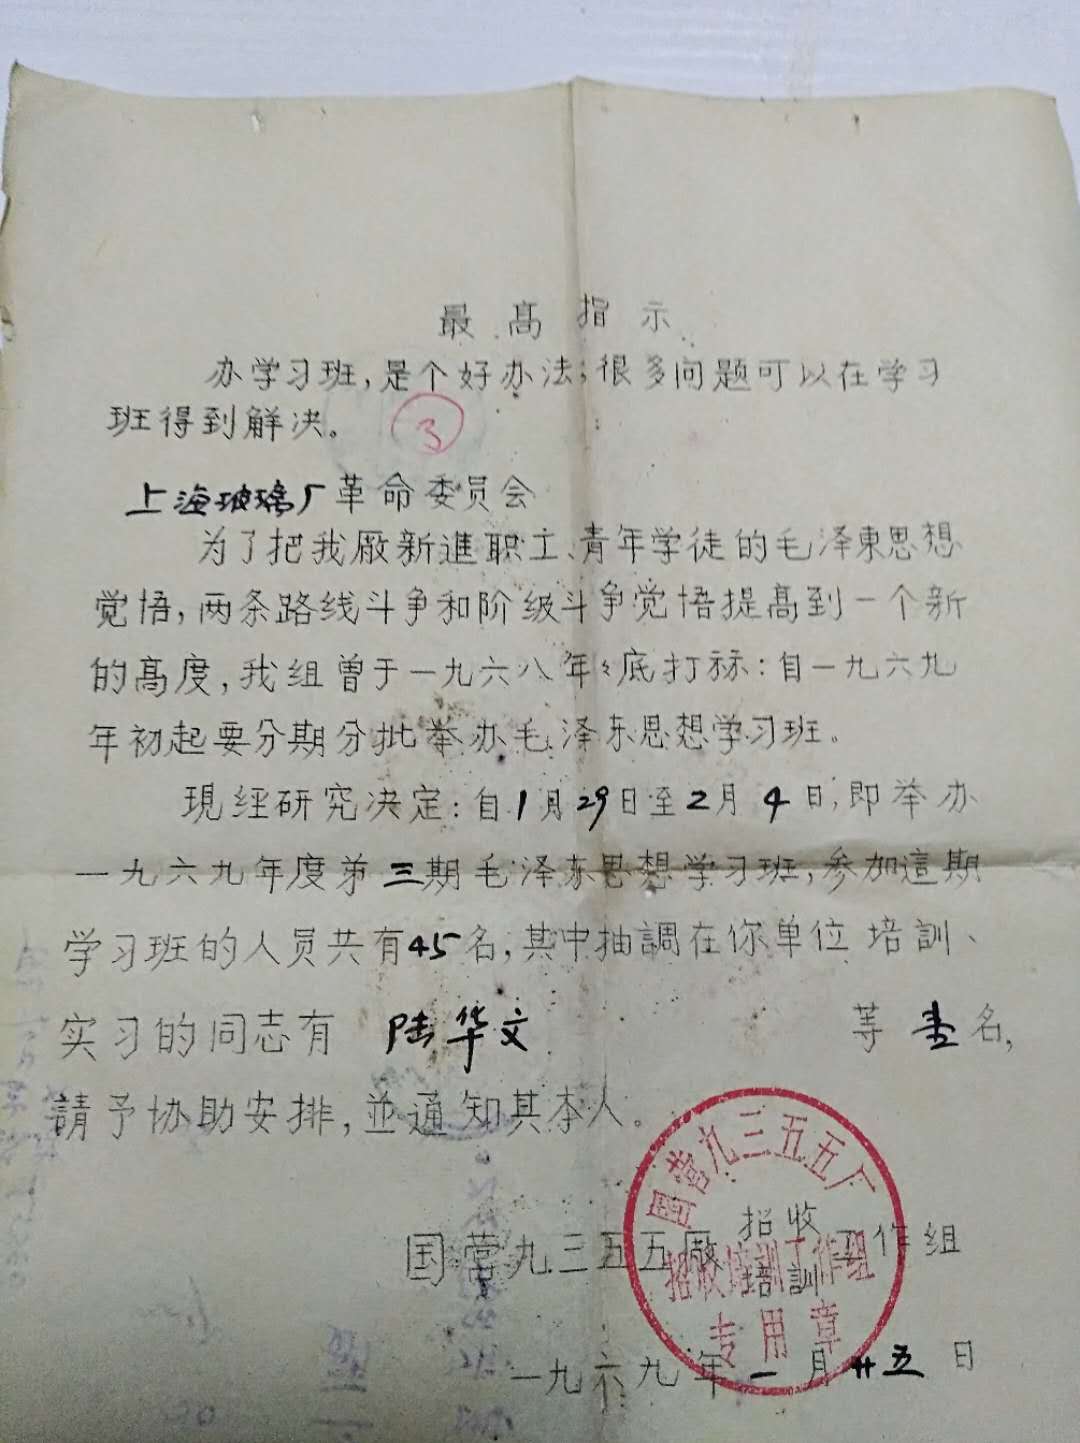 最高指示
办学习班,是个好办法;很多问题可以在学习
班得到解决。
3
上海玻璃厂革命委员会
为了把我厰新進职工、青年学徒的毛泽東思想
觉悟,两条路线斗争和阶级斗争觉悟提高到一个新
的高度,我组曾于一九六八年年底打祘:自一九六九
年初起要分期分批举办毛泽东思想学习班。
現经研究决定:自1月29日至2月4日,即举办
一九六九年度第三期毛泽东思想学习班,参加這期
学习班的人员共有45名,其中抽調在你单位培訓、
实习的同志有 陆华文 等壹名,
請予协助安排,並通知其本人。
国营九三五五厰招收培訓工作组
国营九三五五厂
招收培训工作组
专用章
一九六九年一月廿五日